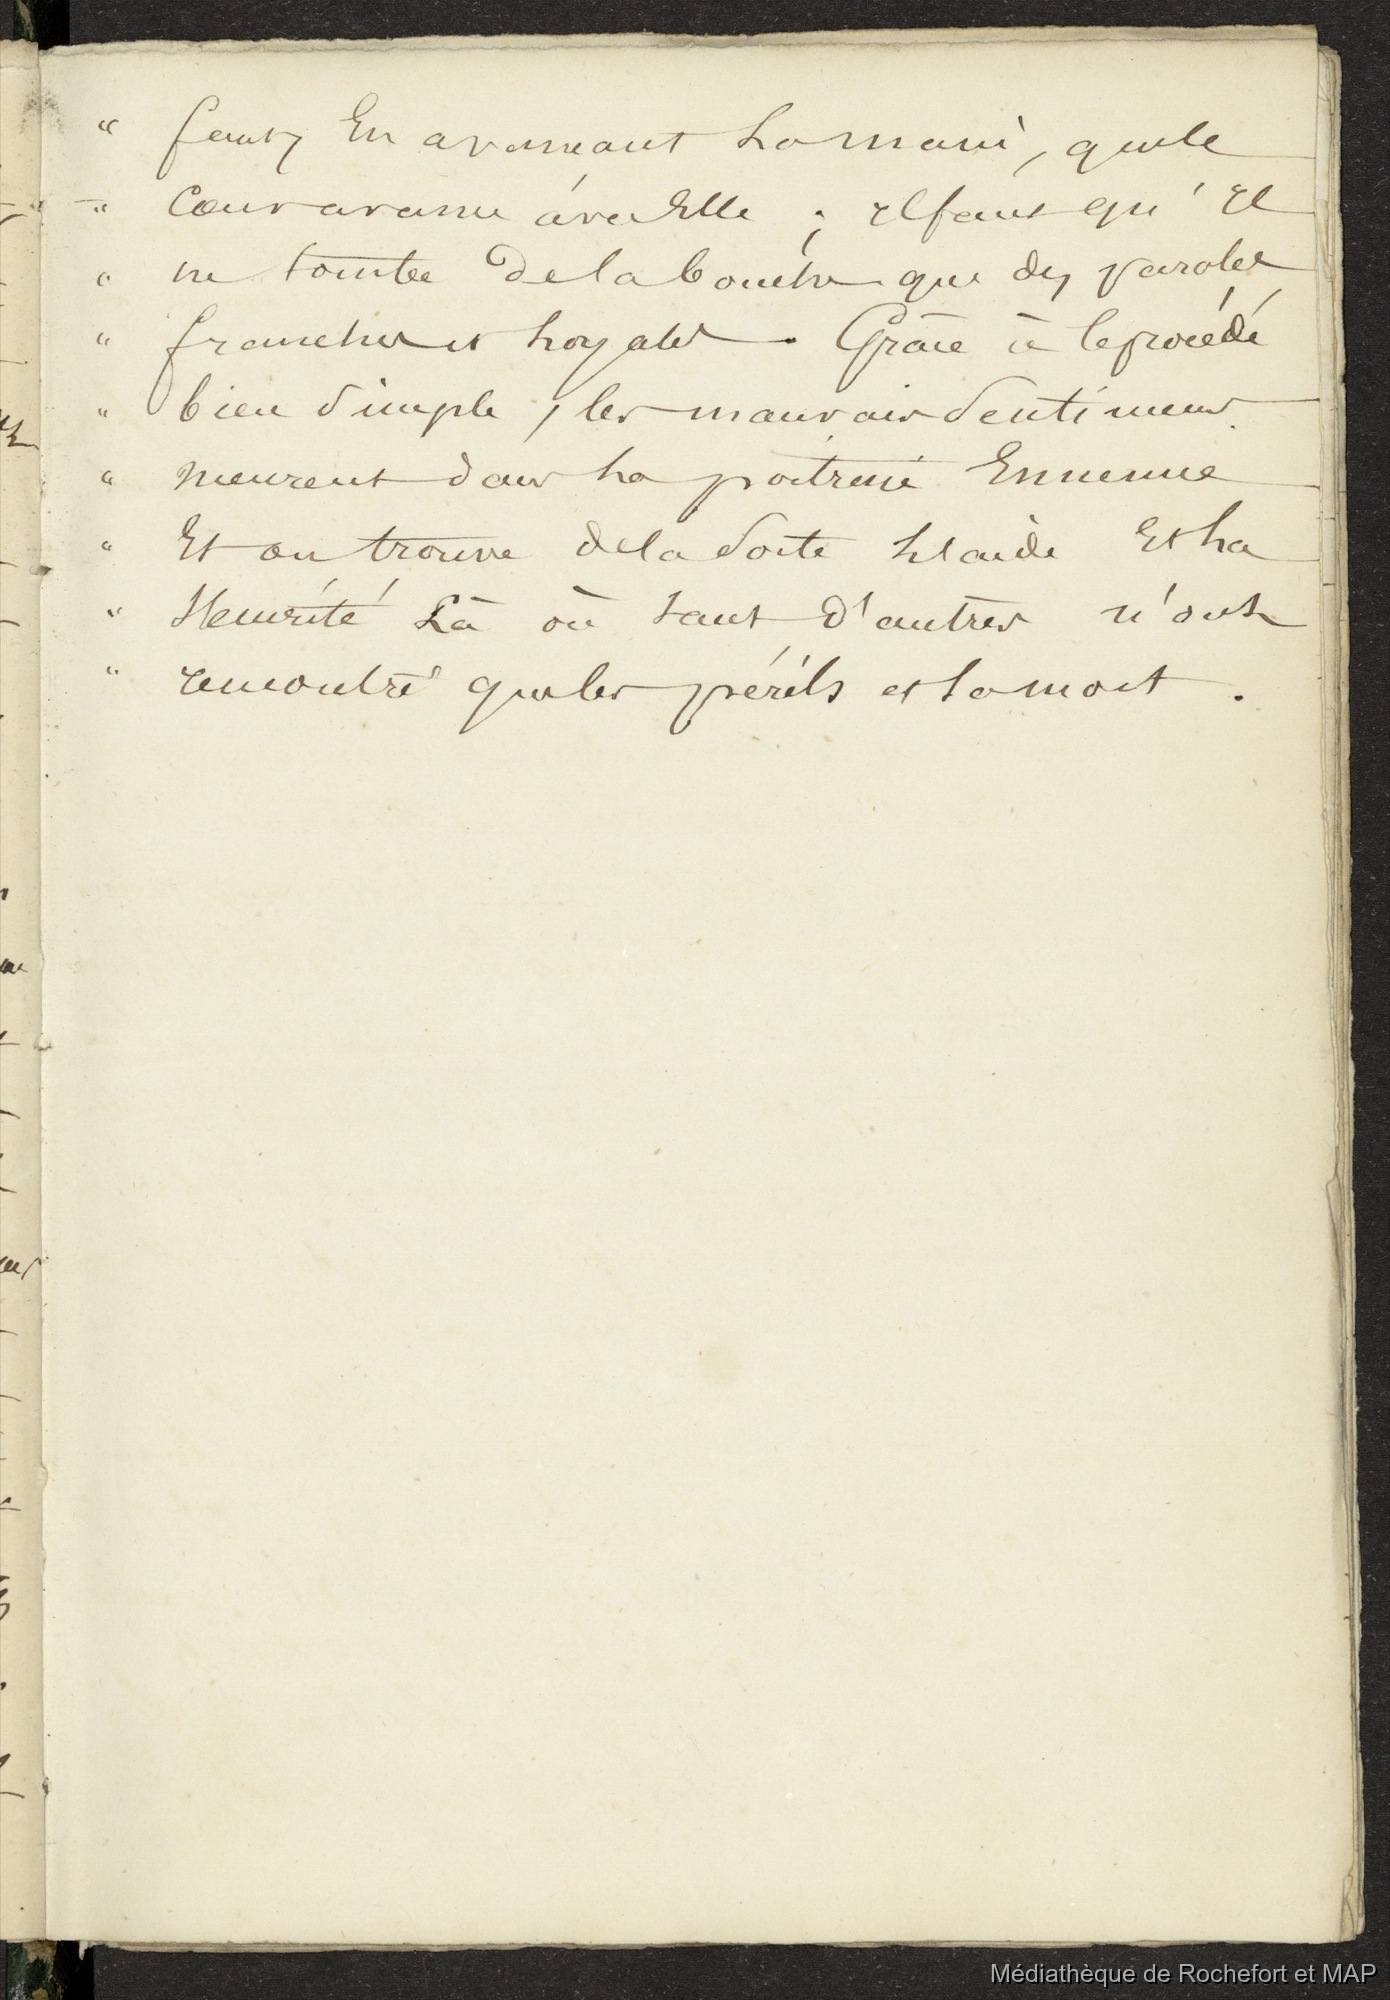 " faut, En avançant La main, que le
" Cœur avance avec Elle ; il faut qu'il
" ne tombe de la bouche que des paroles
" franches et Loyales . Grâce à ce procédé
" bien simple, les mauvais sentiments
" meurent dans La poitrine Ennemie
" Et on trouve de la sorte L'aide Et La
" sécurité Là où tant d'autres n'ont
" rencontré que les périls et la mort .
Médiathèque de Rochefort et MAP